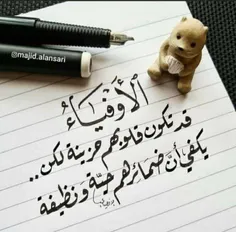 @majid.alansari
الأَوْفِيَاءُ
قد تكون قلوبهم حزينة لكن ..
يكفي أن ضمائرهم حيّة ونظيفة